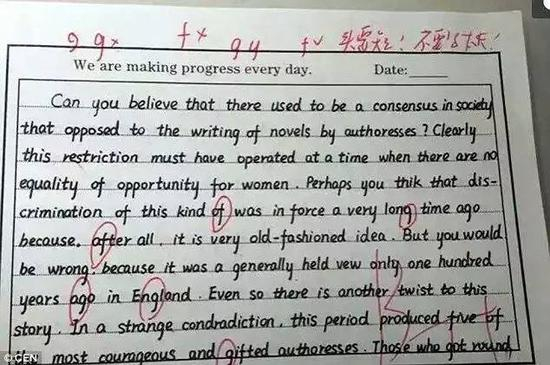 g gx fx gy fv
We are making progress every day. Date:
Can you believe that there used to be a consensus in society
that opposed to the writing of novels by authoresses ? Clearly
this restriction must have operated at a time when there are no
equality of opportunity for women . Perhaps you thik that dis-
crimination of this kind of was in force a very long time ago
because. after all . it is very old-fashioned idea . But you would
be wrong. because it was a generally held vew only one hundred
years ago in England . Even so there is another twist to this
story . In a strange condradiction , this period produced five of
the most courageous and gifted authoresses . Those who got round
©CEN